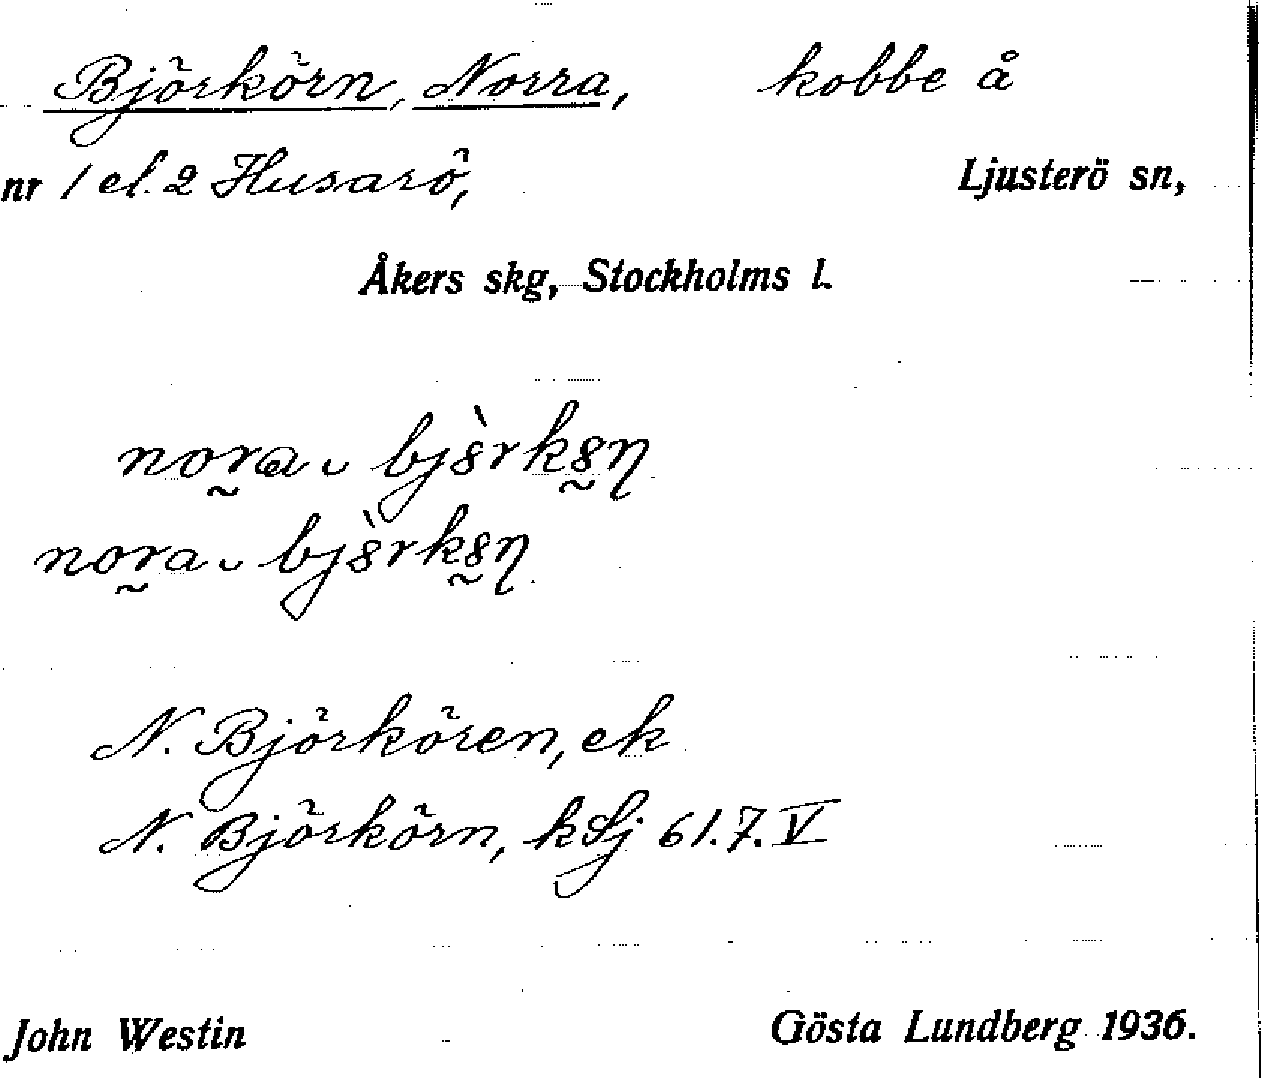 Björkörn, Norra, kobbe å
nr 1 el. 2 Husarö, Ljusterö sn,
Åkers skg, Stockholms l.
N. Björkören, ek
N. Björkörn, ksj 61.7.V
John Westin Gösta Lundberg 1936.